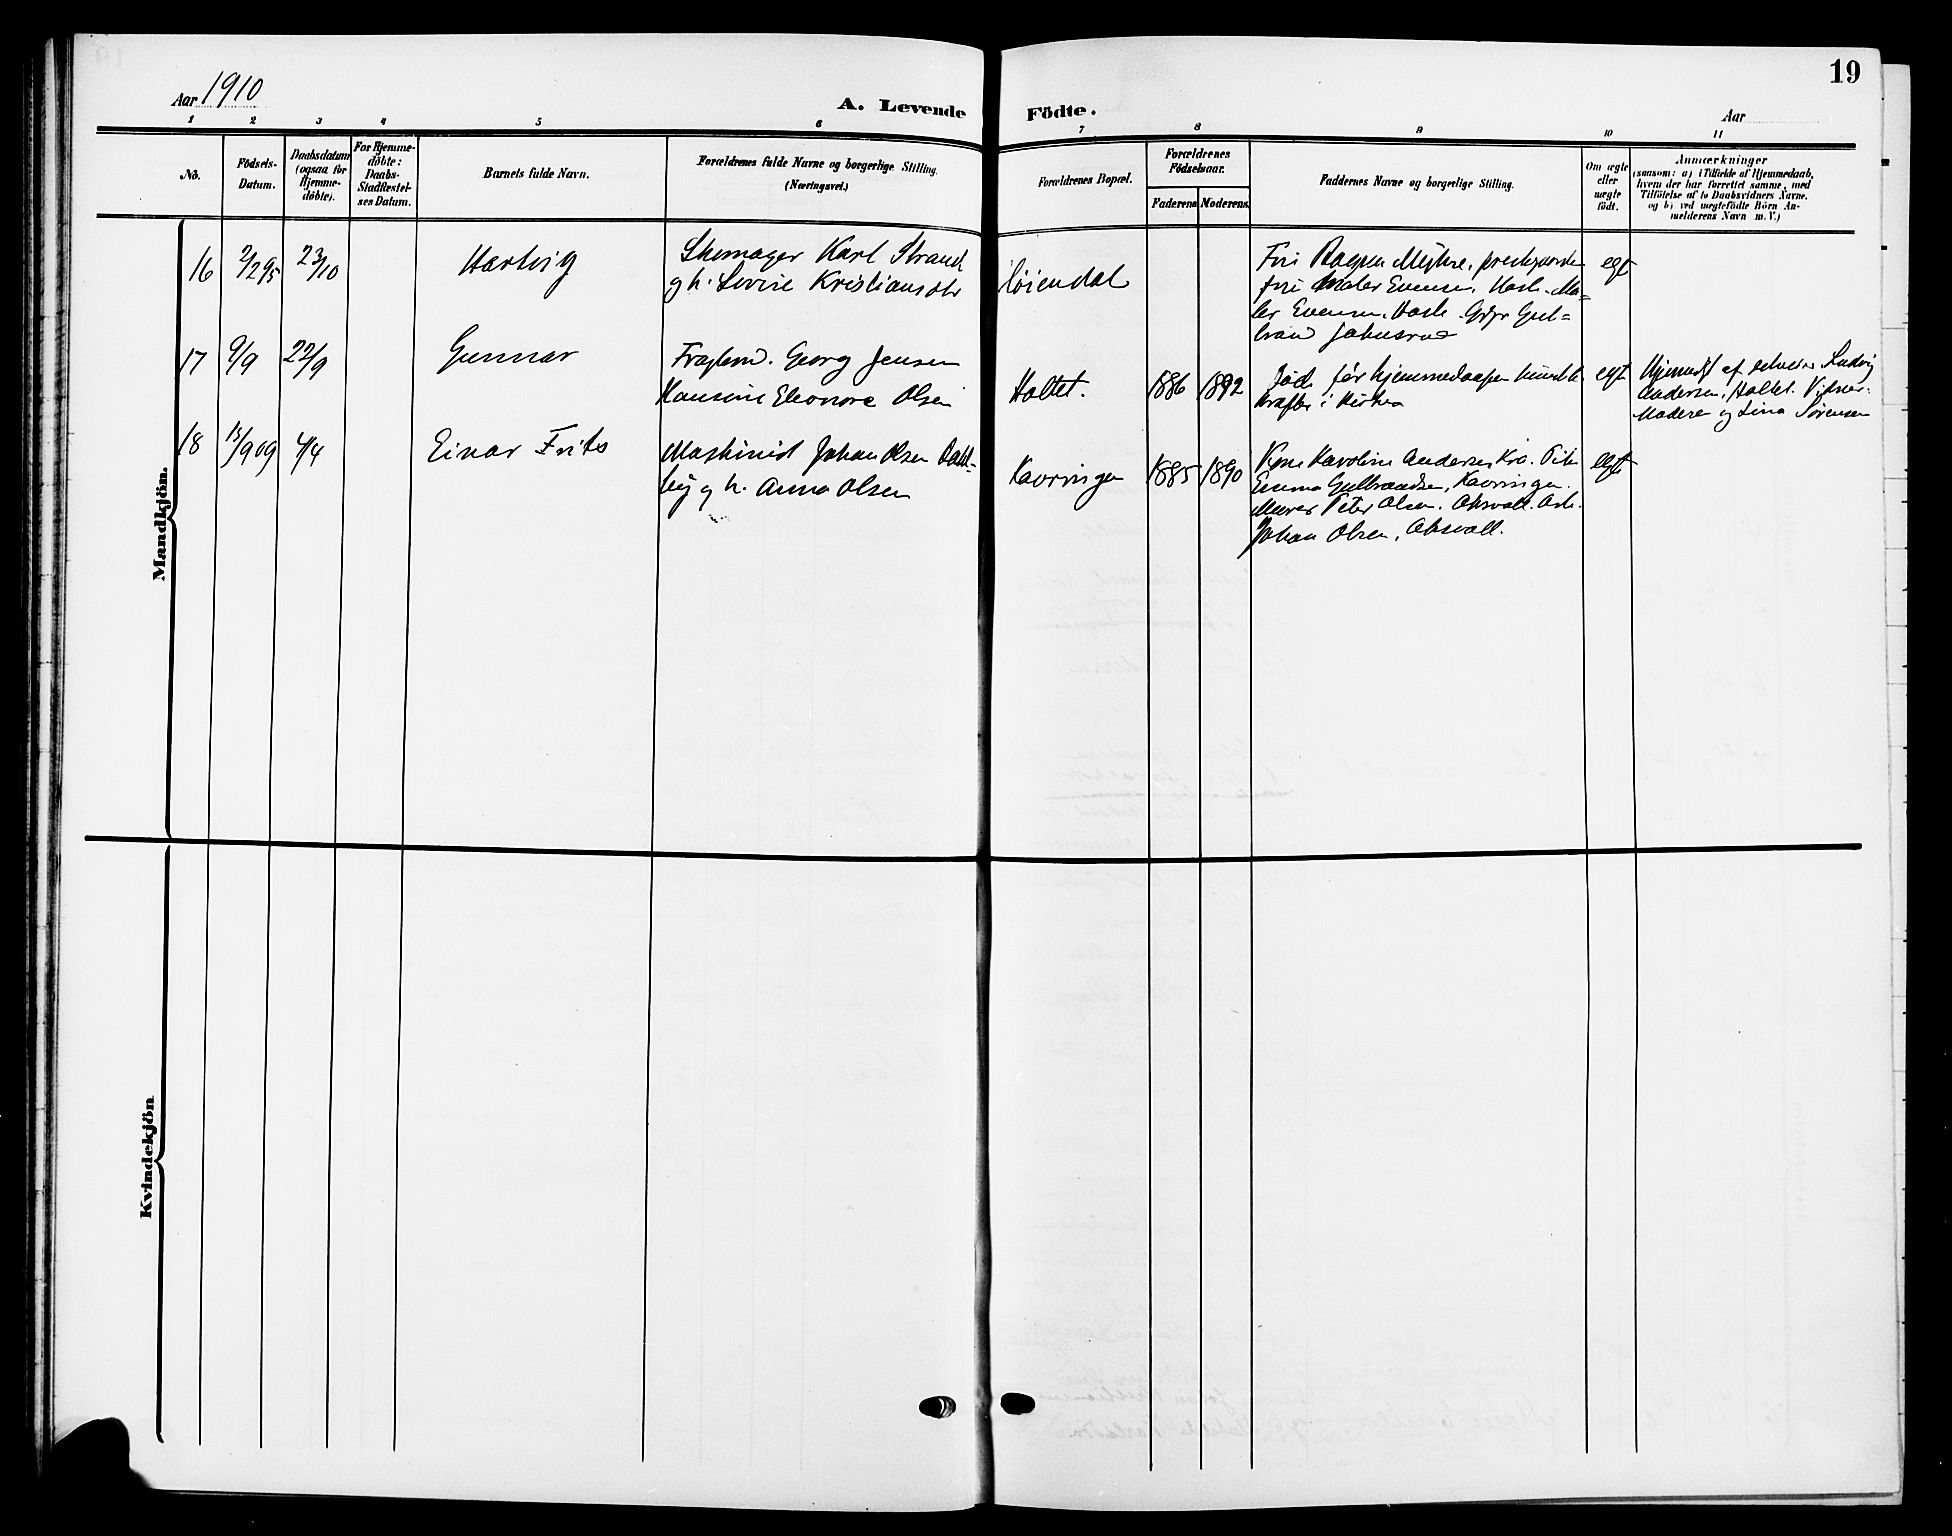 19
Aar 1910
A. Levende Födte.
Aar
1 2 3 4 5 6 7 8 9 10 11
No.
Födsels-
Datum.
Daabsdatum
(ogsaa for
Hjemme-
døbte).
For Hjemme-
døbte:
Daabs-
Stadfæstel-
ses Datum.
Barnets fulde Navn.
Forældrenes fulde Navne og borgerlige Stilling.
(Næringsvei.)
Forældrenes Bopæl.
Forældrenes
Födselsaar.
Faderens Moderens.
Faddernes Navne og borgerlige Stilling.
Om ægte
eller
uægte
født.
Anmærkninger
(saasom: a) i Tilfælde af Hjemmedaab,
hvem der har forrettet samme, med
Tilföielse af to Daabsvidners Navne.
og b) ved uægtefödte Börn An-
melderens Navn m. V.)
Mandkjön.
16 2/2 95 23/10 Hartvig
Skomager Karl Strand
og h. Lovise Kristiansdtr
Løiendal
Fru Magnus
fru Maler Evensen, Hasle. Ma-
ler Evensen, Hasle. Gdbr Gul-
brand
egt
17 9/9 22/9 Gunnar
Georg Jensen
Hansine Eleonore Olsen
Holtet.
1886 1892
Død før hjemmedaapen kunde be-
kræftes i Kirken
egt
Hjemdøbt af Ludvig
Andersen, Holtet. Vidner.
Madere og Lina Sørensen
18 13/9 09 4/4 Einar Frits
Maskinist Johan Olsen Dahl-
by og h. Anna Olsen
Kavringen
1885 1890
Karoline Andersen Kra. Pike
Emma Gulbrandsen, Kavringen.
Murer Peter Olsen, Aksvall. Arb.
Johan Olsen, Aksvall.
egt
Kvindekjön